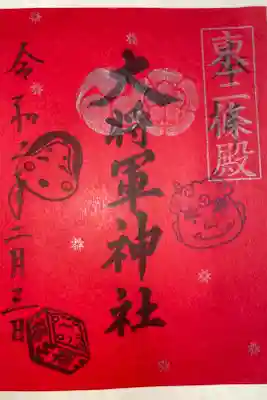 東三條殿
大将軍神社
令和六年二月三日